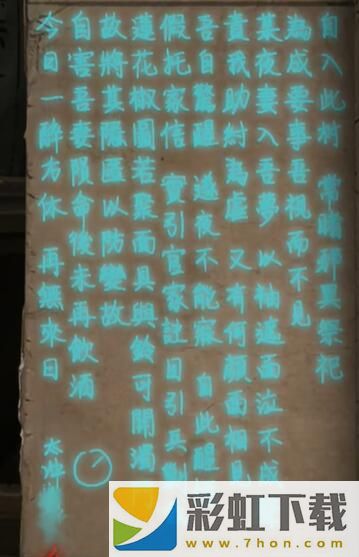 自入此村 常睹邪異祭祀
為成要事吾視而不見
某夜妻入吾夢以袖遮面泣不成
責我助紂為虐 又有何顏面相見
吾自驚醒 遂夜不能寐 自此醒
假托家信 實引官家註目引兵
蓮花椒圖若聚面具與鈴可開濁
故將其隱匿以防變故
自害吾妻隕命後未再飲酒
今日一醉方休 再無來日
彩虹下载
www.7hon.com